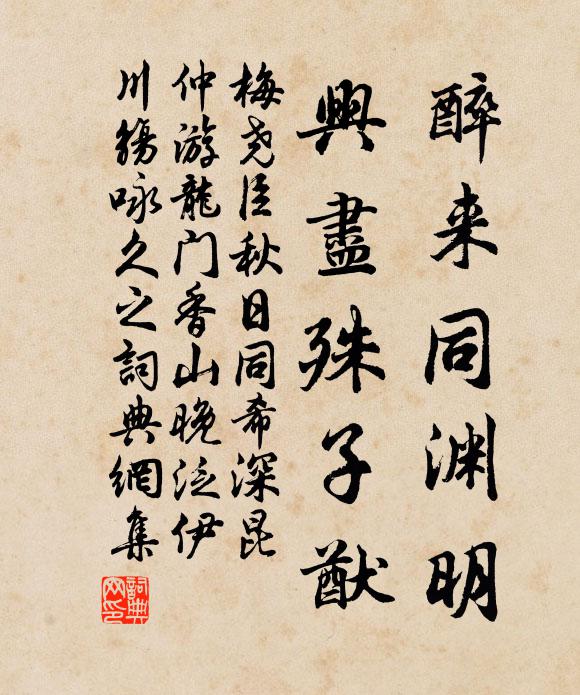 醉来同渊明
興盡殊子猷
梅尧臣秋日同希深昆
仲游龍门香山晚泛伊
川觴咏久之詞典網集
詞典
网印